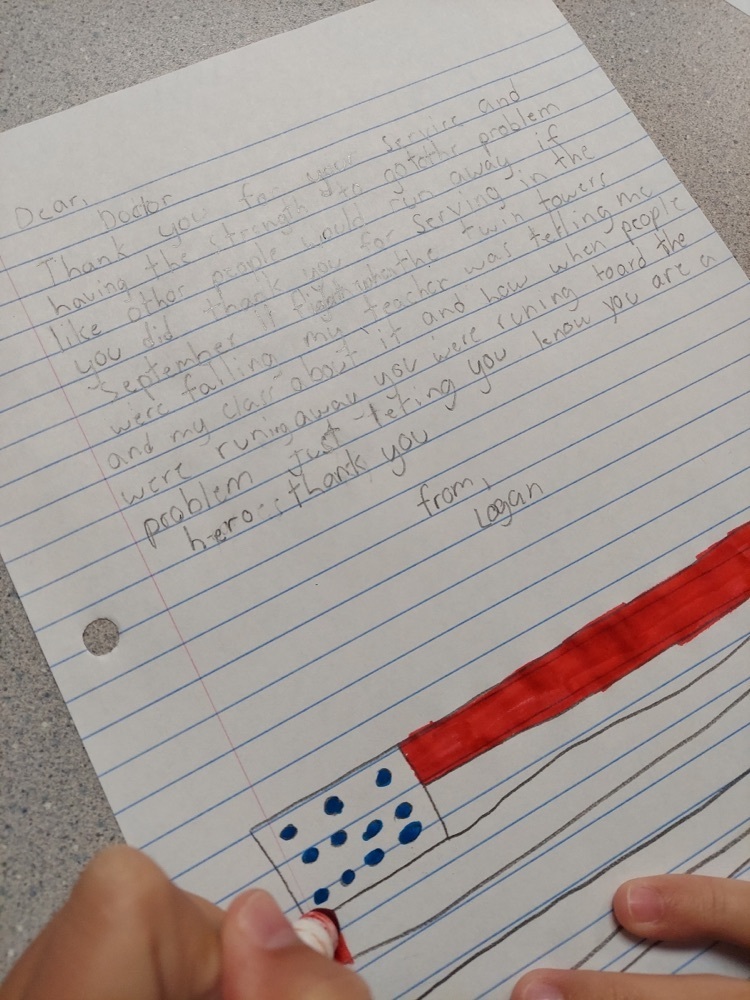 Dear,
Doctor
Thank you for your service and
having the strength to go to the problem
like other people would run away if
you did. thank you for serving in the
September 11 the twin towers
were falling my teacher was telling me
and my class about it and how when people
were runing away you were runing toard the
problem just leting you know you are a
hero thank you
from,
Logan